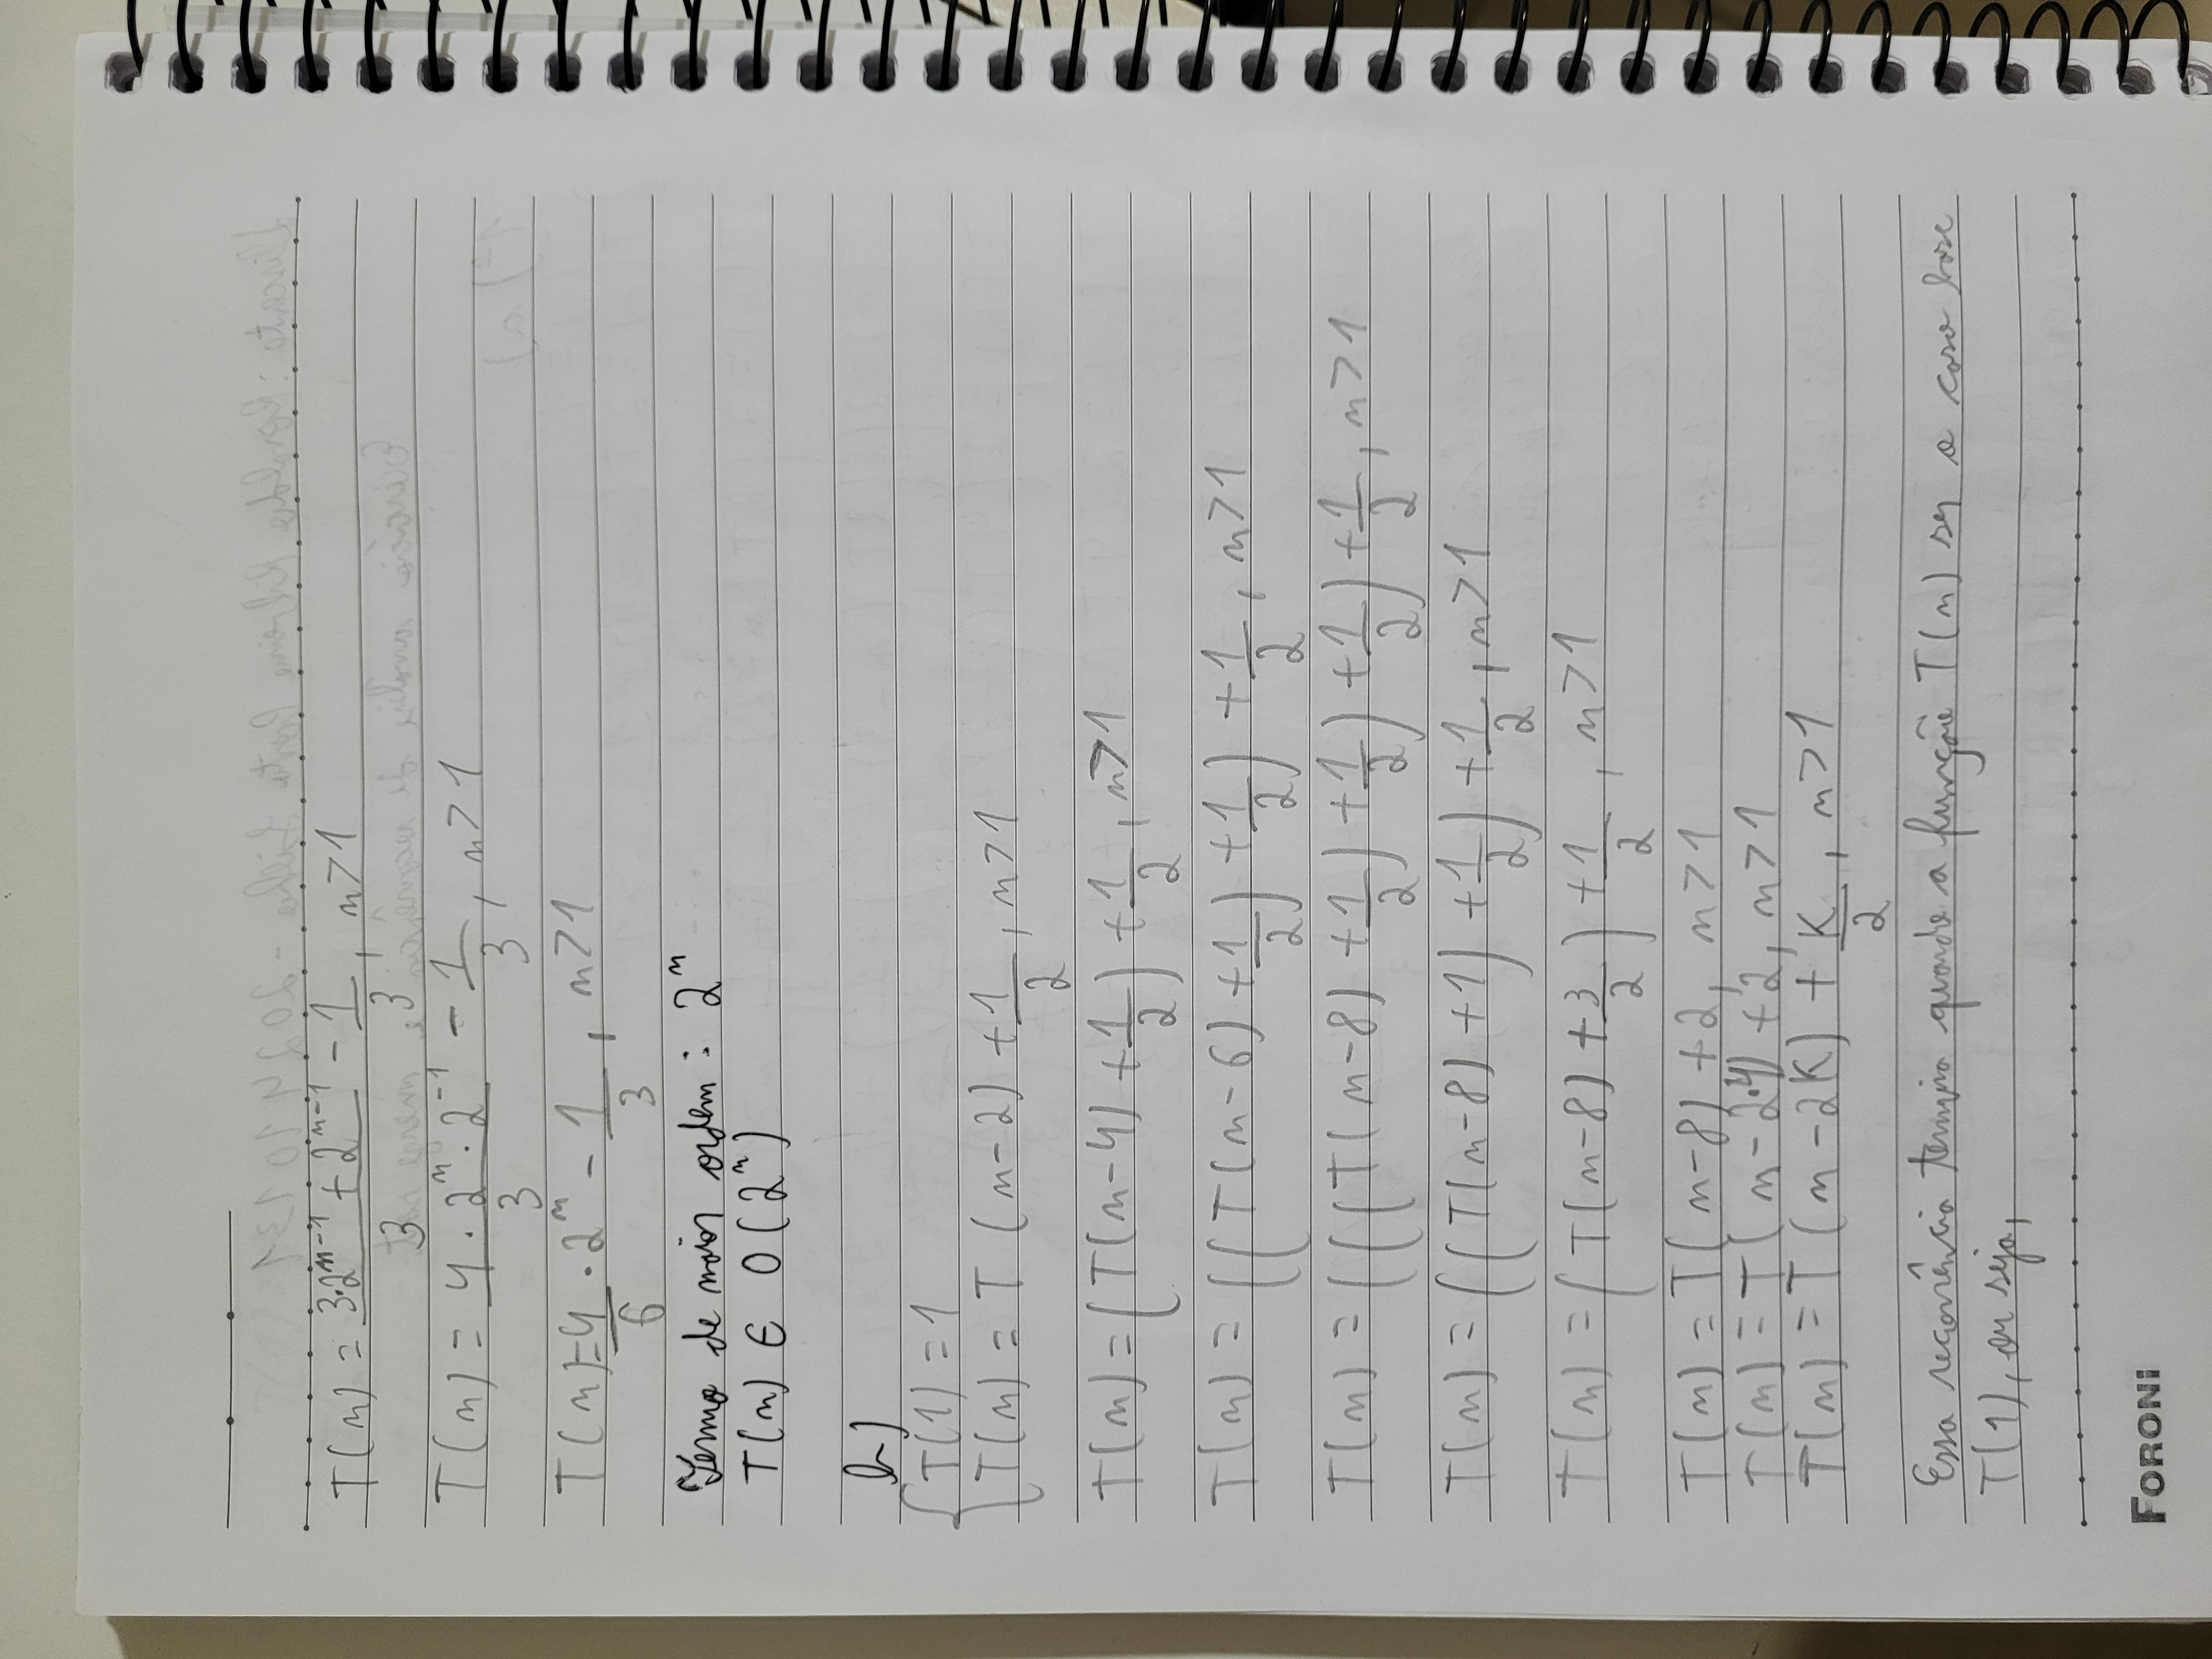 T(n) = (3·2^(n-1) + 2^(n-1))/3 - 1/3, n>1
T(n) = (4 · 2^n · 2^-1)/3 - 1/3, n>1
T(n)= 4/6 · 2^n - 1/3, n>1
Termo de maior ordem: 2^n
T(n) ∈ O(2^n)
b)
{T(1) = 1
T(n) = T(n-2) + 1/2, n>1
T(n) = (T(n-4) + 1/2) + 1/2, n>1
T(n) = ((T(n-6) + 1/2) + 1/2) + 1/2, n>1
T(n) = (((T(n-8) + 1/2) + 1/2) + 1/2) + 1/2, n>1
T(n) = ((T(n-8) + 1) + 1/2) + 1/2, n>1
T(n) = (T(n-8) + 3/2) + 1/2, n>1
T(n) = T(n-8) + 2, n>1
T(n) = T(n-2·4) + 2, n>1
T(n) = T(n-2K) + K/2, n>1
Essa recorrência termina quando a função T(n) ser o caso base
T(1), ou seja,
FORONI